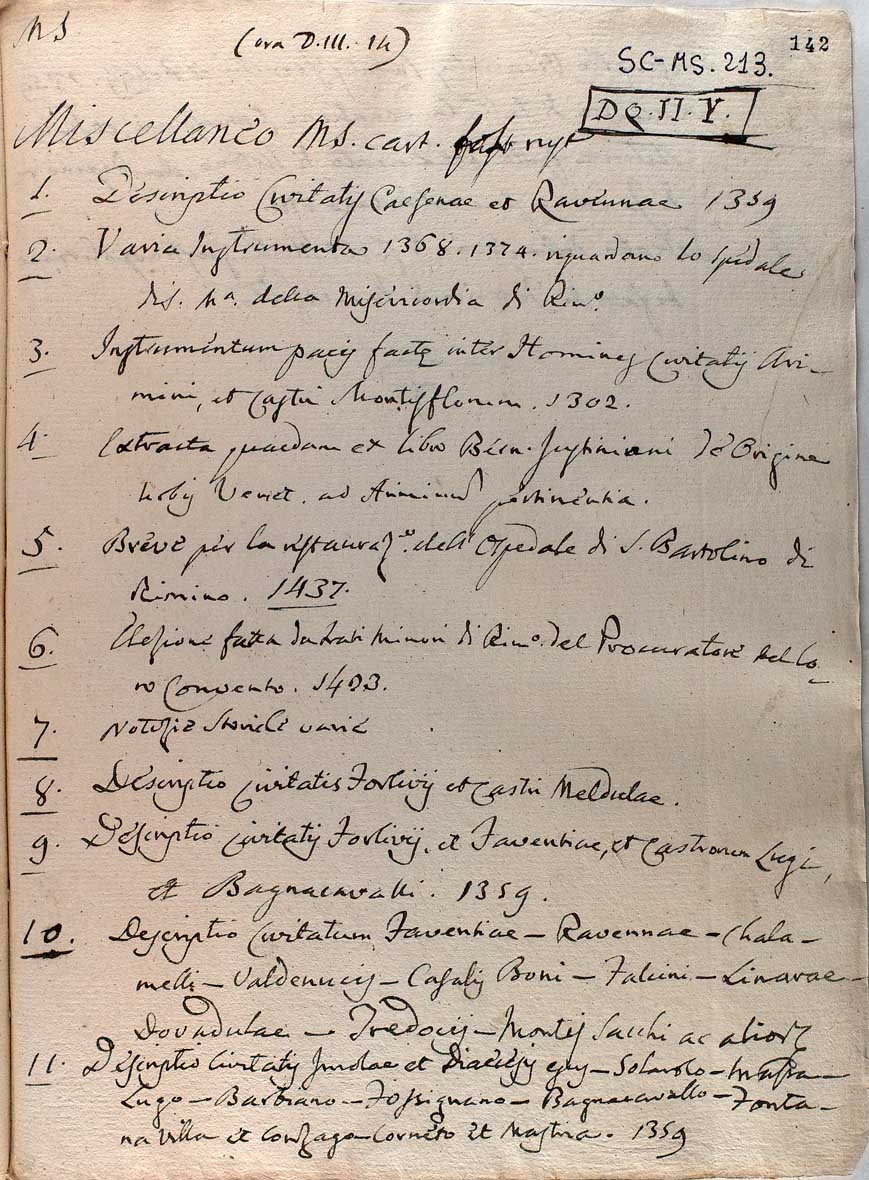 MS
(ora D.III.14)
142
SC-MS. 213.
D Q. II. V.
Miscellaneo MS. cart.
1. Descriptio Civitatis Caesenae et Ravennae 1359
2. Varia Instrumenta 1368. 1374. riguardano lo spedale
di S. Ma. della Misericordia di Rimo.
3. Instrumentum pacis factę inter Homines Civitatis Ari-
mini, et Castri Montisflorum. 1302.
4. Extracta quaedam ex libro Bern. Justiniani de Origine
Urbis Venet. ad Ariminum pertinentia.
5. Breve per la restauraze. dell' Ospedale di S. Bartolino di
Rimino. 1437.
6. Elezione fatta da Frati Minori di Rimo. del Procuratore del lo-
ro Convento. 1493.
7. Notizie Storiche varie
8. Descriptio Civitatis Forlivij et Castri Meldulae.
9. Descriptio Civitatis Forlivij, et Faventiae, et Castrorum Lugi,
et Bagnacavalli. 1359.
10. Descriptio Civitatum Faventiae – Ravennae – Chala-
melli – Valdenucis – Casalis Boni – Falcini – Linarae –
Dovadulae – Tredocij – Montis Sacchi ac alior
11. Descriptio Civitatis Imolae et Diecesis ejus – Solarolo – Massa –
Lugo – Barbiano – Fossignano – Bagnacavallo – Fonta-
na villa et Conzago – Corneto et Mastria. 1359